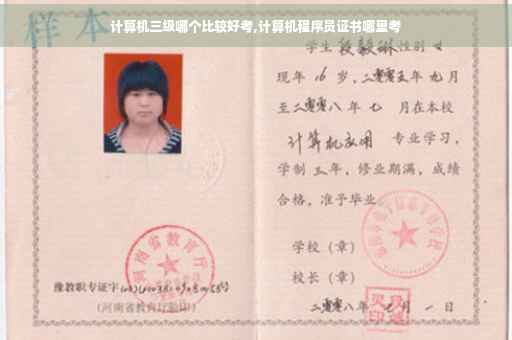 计算机三级哪个比较好考,计算机程序员证书哪里考
样本
学生 段毅琳 性别 女
现年 16 岁,二零零五年 九 月
至二零零八 年 七 月在本校
计算机应用 专业学习,
学制 三 年,修业期满,成绩
合格,准予毕业
学校（章）
校长（章）
二零零八年 月 一 日
河南省教育厅
豫教职专证字
(河南省教育厅验印)